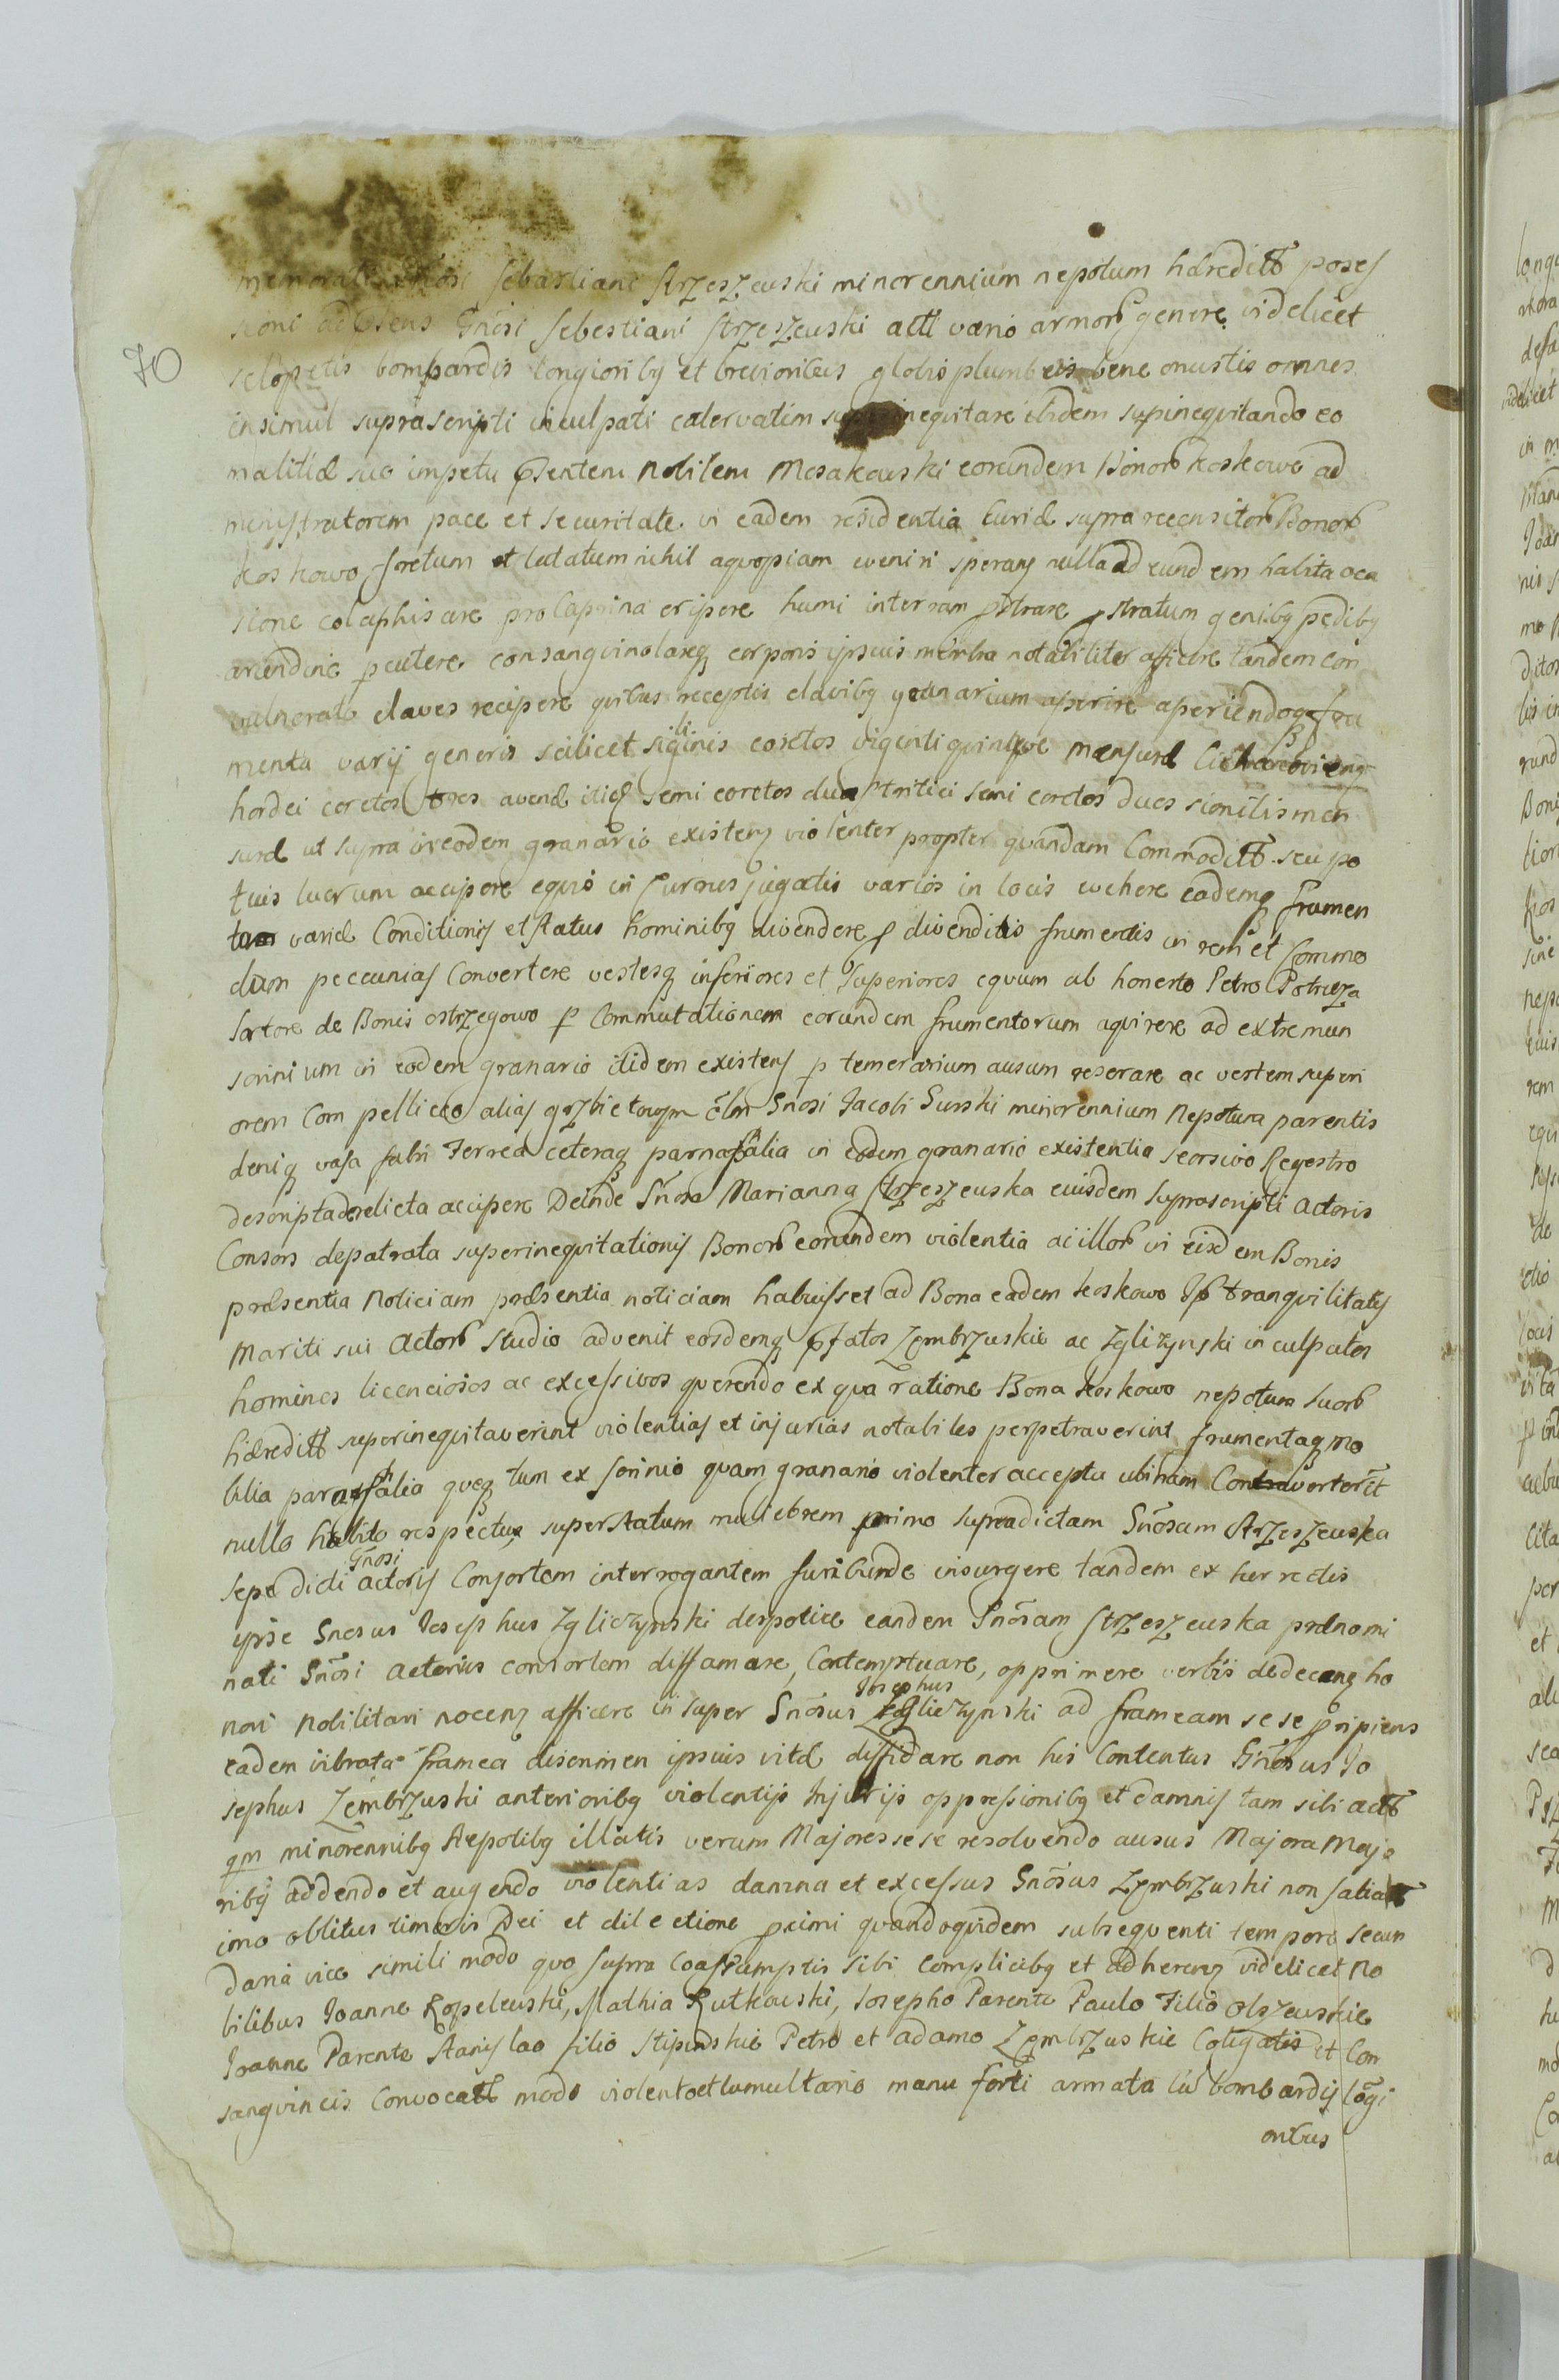 Sebastiani Strzeszewski minorennium nepotum hæreditt posses
sioni Gnosi Sebestiani Strzeszewski actt vario armor genere videlicet
sclopetis bombardis longioribq et brevioribus globis plumbeis bene onustis omnes
insimul suprascripti inculpati catervatim superinequitare ibidem supinequitando eo
malitiæ suo impetu Nobilem Mosakowski eorundem Bonor Koskowo ad
ministratorem pace et securitate in eadem residentia Curiæ supra recensitor Bonor
Koskowo fretum et tutatum nihil aquopiam eveniri sperans nulla ad eundem habita oca
sione colaphisare pro Caprina eripere humi interram pstrare pstratum genibq pedibq
arundine pcutere consangvinolareq corporis ipsius membra notabiliter afficere tandem con
vulnerato claves recipere quibus receptis clavibq granarium aperire aperiendoq fru
menta varij generis scilicet siliginis coretos viginti quinque mensuræ
hordei coretos tres avenæ itidem semi coretos duos tritici semi coretos duos similis men
suræ ut supra in eodem granario existen violenter propter quandam Commoditt seu po
tius lucrum accipere equis in Currus jugatis varios in locis evehere eademq frumen
ta variæ Conditionis et status hominibq divendere p divenditis frumentis in rem et Commo
dum peccunias Convertere vestesq inferiores et superiores equum ab honesto Petro Potrieza
Sartore de Bonis ostrzegowo p Commutationem eorundem frumentorum aquirere ad extremum
scrinium in eodem granario itidem existens p temerarium ausum reserare ac vestem superi
orem Com pelliceo alias grzbietowym olm Gnosi Jacobi Surski minorennium Nepotum parentis
deniq vasa fabri Ferrea ceteraq parnafalia in eodem granario existentia seorsivo Regestro
descripta derelicta accipere Deinde Gnosa Marianna Strzeszewska eiusdem suprascripti Actoris
Consors depatrata superinequitationis Bonor eorundem violentia ac illor in eisdem Bonis
præsentia Noticiam præsentia noticiam habuisset ad Bona eadem Koskowo Ipso tranqvilitatis
Mariti sui Actor studio advenit eosdemq pfatos Zembrzuskie ac Zgliczynski inculpatos
homines licenciosos ac excessivos querendo ex qua ratione Bona Koskowo nepotum suor
hæreditt superinequitaverint violentias et injurias notabiles perpetraverint frumentaq mo
bilia parafalia queq tum ex scrinio quam granario violenter accepta ubinam Converterit
nullo habito respectu super statum muliebrem primo supradictam Gnosam Strzeszewska
sepe dicti Gnosi actoris Consortem interrogantem furibunde insurgere tandem ex hur rectis
ipse Gnosus Josephus Zgliczynski despotice eandem Gnosam Strzeszewska prænomi
nati Gnosi actoris consortem diffamare, Contemptuare, opprimere verbis dedecen ho
nori Nobilitari nocen afficere insuper Gnosus Josephus Zgliczynski ad frameam sese pripiens
eadem vibrata framea discrimen ipsius vitæ diffidare non his Contentus Gnosus Jo
sephus Zembrzuski anterioribq violentijs Injurijs oppressionibq et damnis tam sibi actt
qm minorennibq Nepotibq illatis verum Majores sese resolvendo ausus Majora Majo
ribq addendo et augendo violentias damna et excessus Gnosus Zembrzuski non satiatt
imo oblitus timoris Dei et dilectione pximi quandoquidem subsequenti tempore secun
daria vice simili modo quo supra Coassumptis sibi Complicibq et adheren videlicet No
bilibus Joanne Kopelewski, Mathia Rutkowski, Josepho Parente Paulo Filio Olszewskie
Joanne Parente Stanislao filio Stipinskie Petro et adamo Zembrzuskie Coligatis et Con
sangvineis Convocatt modo violento et tumultario manu forti armata cu bombardis logi
oribus
70